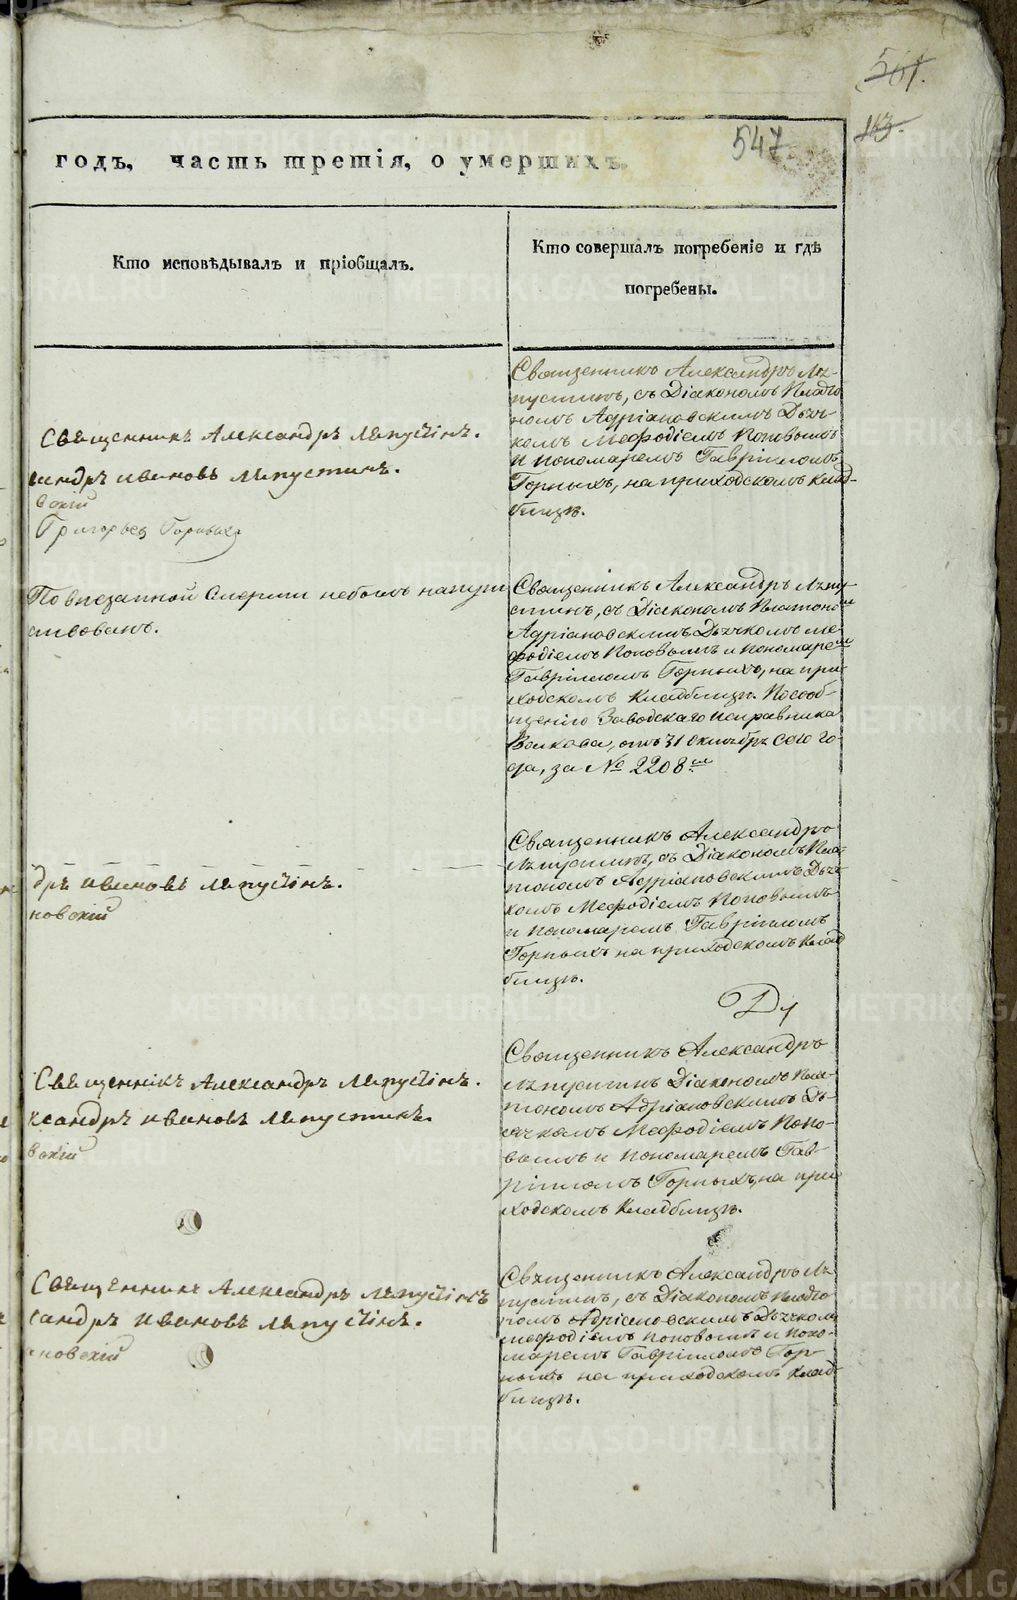 561.
163.
547
годъ, часть третія, о умершихъ.
Кто исповѣдывалъ и пріобщалъ.
Кто совершалъ погребеніе и гдѣ
погребены.
Священникъ Александръ Лѣпустинъ.
сандръ Ивановъ Лѣпустинъ.
вскій
Григорьев Горныхъ
Священникъ Александръ Лѣ-
пустинъ, съ Діакономъ Плато
номъ Адріановскимъ Дьяч-
комъ Мефодіемъ Поповымъ
и Пономаремъ Гавріиломъ
Горныхъ, на приходскомъ Клад-
бищѣ.
По внезапной Смерти небылъ напут
ствованъ.
Священникъ Александръ Лѣпу-
стинъ, съ Діакономъ Платоном
Адріановскимъ Дьячкомъ Ме-
фодіемъ Поповымъ и Пономарем
Гавріиломъ Горныхъ, на при-
ходскомъ Кладбищѣ. По сооб-
щенію Заводскаго Исправника
Волкова, отъ 31 октябрѣ сего го-
да, за № 2208м
дръ Ивановъ Лѣпустинъ.
новскій
Священникъ Александръ
Лѣпустинъ, съ Діакономъ Пла-
тономъ Адріановскимъ Дьяч-
комъ Мефодіемъ Поповымъ
и Пономаремъ Гавріиломъ
Горныхъ на приходскомъ Клад
бищѣ.
Священникъ Александръ Лѣпустинъ.
ксандръ Ивановъ Лѣпустинъ.
вскій
Священникъ Александръ
Лѣпустинъ Діакономъ Пла-
тономъ Адріановскимъ Дь-
ячкомъ Мефодіемъ Попо-
вымъ и Пономаремъ Гав-
ріиломъ Горныхъ, на при
ходскомъ Кладбищѣ.
Священникъ Александръ Лѣпустинъ
сандръ Ивановъ Лѣпустінъ.
новскій
Священникъ Александръ Лѣ
пустинъ, съ Діакономъ Плато
номъ Адріановскимъ Дьячкомъ
Мефодіемъ Поповымъ и Поно-
маремъ Гавріиломъ Гор-
ныхъ на приходскомъ Клад-
бищѣ.
METRIKI.GASO-URAL.RU